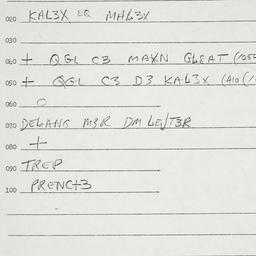 020 KAL3X EQ MHL3X
030
040 + QGL C3 MAXN GLEAT (1054
050 + QGL C3 D3 KAL3X (410 (1
060 O
070 DELANG M3R DM LE/T3R
080 +
090 TREP
100 PRENC+3